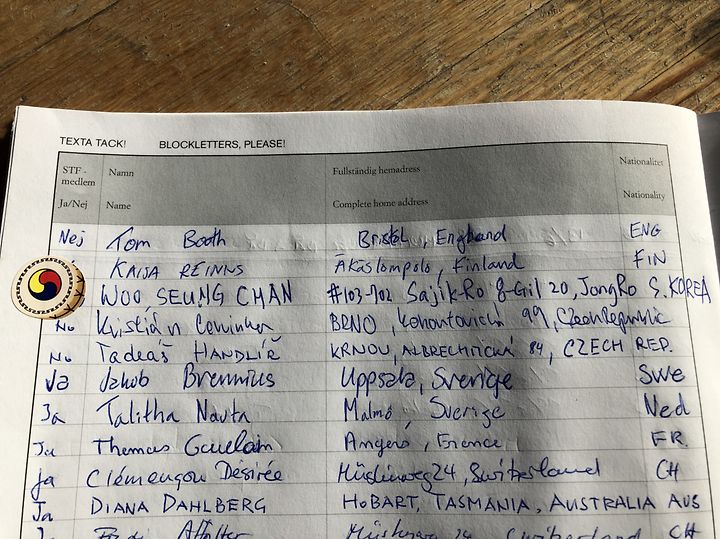 TEXTA TACK! BLOCKLETTERS, PLEASE!
STF - medlem Namn Fullständig hemadress Nationalitet
Ja/Nej Name Complete home address Nationality
Nej Tom Booth Bristol, England ENG
KAIJA REINNS Äkäslompolo, Finland FIN
WOO, SEUNG CHAN #103-702 Sajik-Ro 8-Gil 20, JongRo S. KOREA
No Kristián BRNO, 99, Czech Republic
No Tadeáš HANDLÍŘ KRNOV, ALBRECHTICKÁ 84, CZECH REP.
Ja Jakob Brennius Uppsala, Sverige Swe
Ja Talitha Nauta Malmö, Sverige Ned
Ja Thomas Angers, France FR.
Ja Clémençon Désirée 24, Switzerland CH
Ja DIANA DAHLBERG HOBART, TASMANIA, AUSTRALIA AUS
24 Switzerland CH